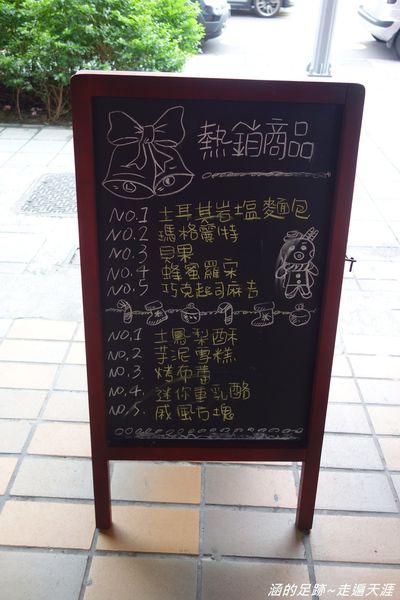 熱銷商品
NO.1 土耳其岩塩麵包
NO.2 瑪格麗特
NO.3 貝果
NO.4 蜂蜜羅宋
NO.5 巧克起司麻吉
NO.1 土鳳梨酥
NO.2 芋泥雪糕
NO.3. 烤布蕾
NO.4. 迷你重乳酪
NO.5. 戚風方塊
涵的足跡~走遍天涯